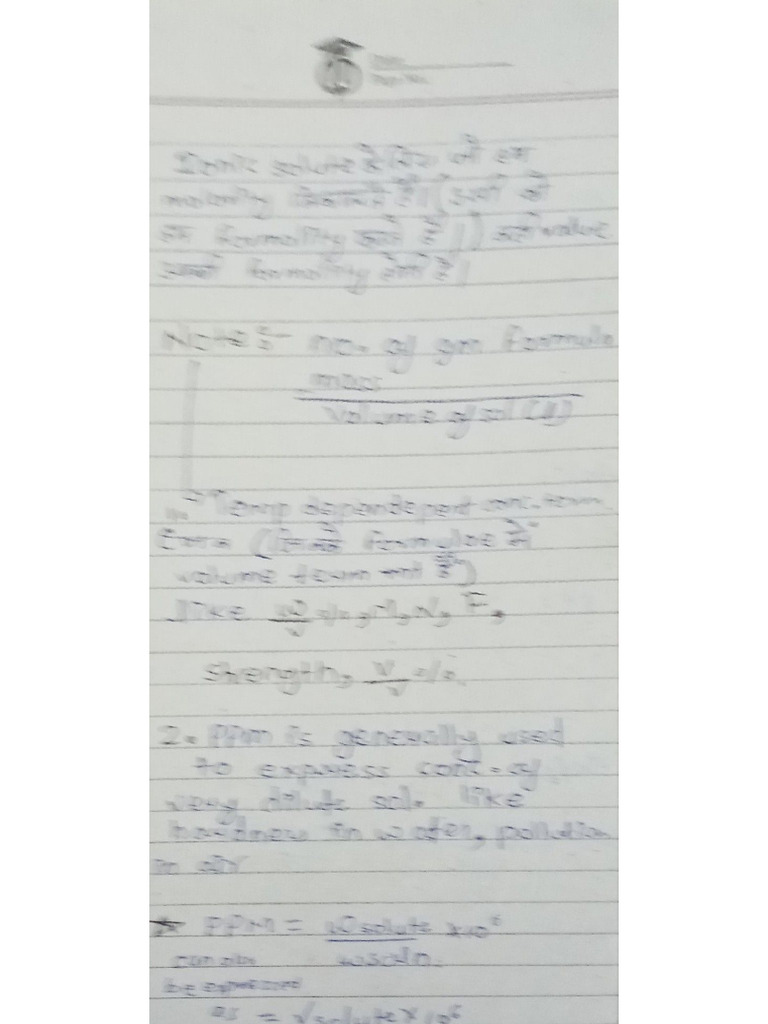 Ionic solute के लिए जो हम
molarity निकालते हैं। (उसी को
हम formality कहते हैं।) value
उसकी formality होती है।
Note :- no. of gm formula
mass
Volume of sol (l)
1. Temp dependent conc. term
(जिनके formulae में
volume term हो)
like w/v %, M, N, F,
Strength, v/v %.
2. PPM is generally used
to express conc. of
very dilute sol. like
hardness in water, pollution
in air
* PPM = w solute × 10⁶
w soln.
can also
be expressed
as = v solute × 10⁶